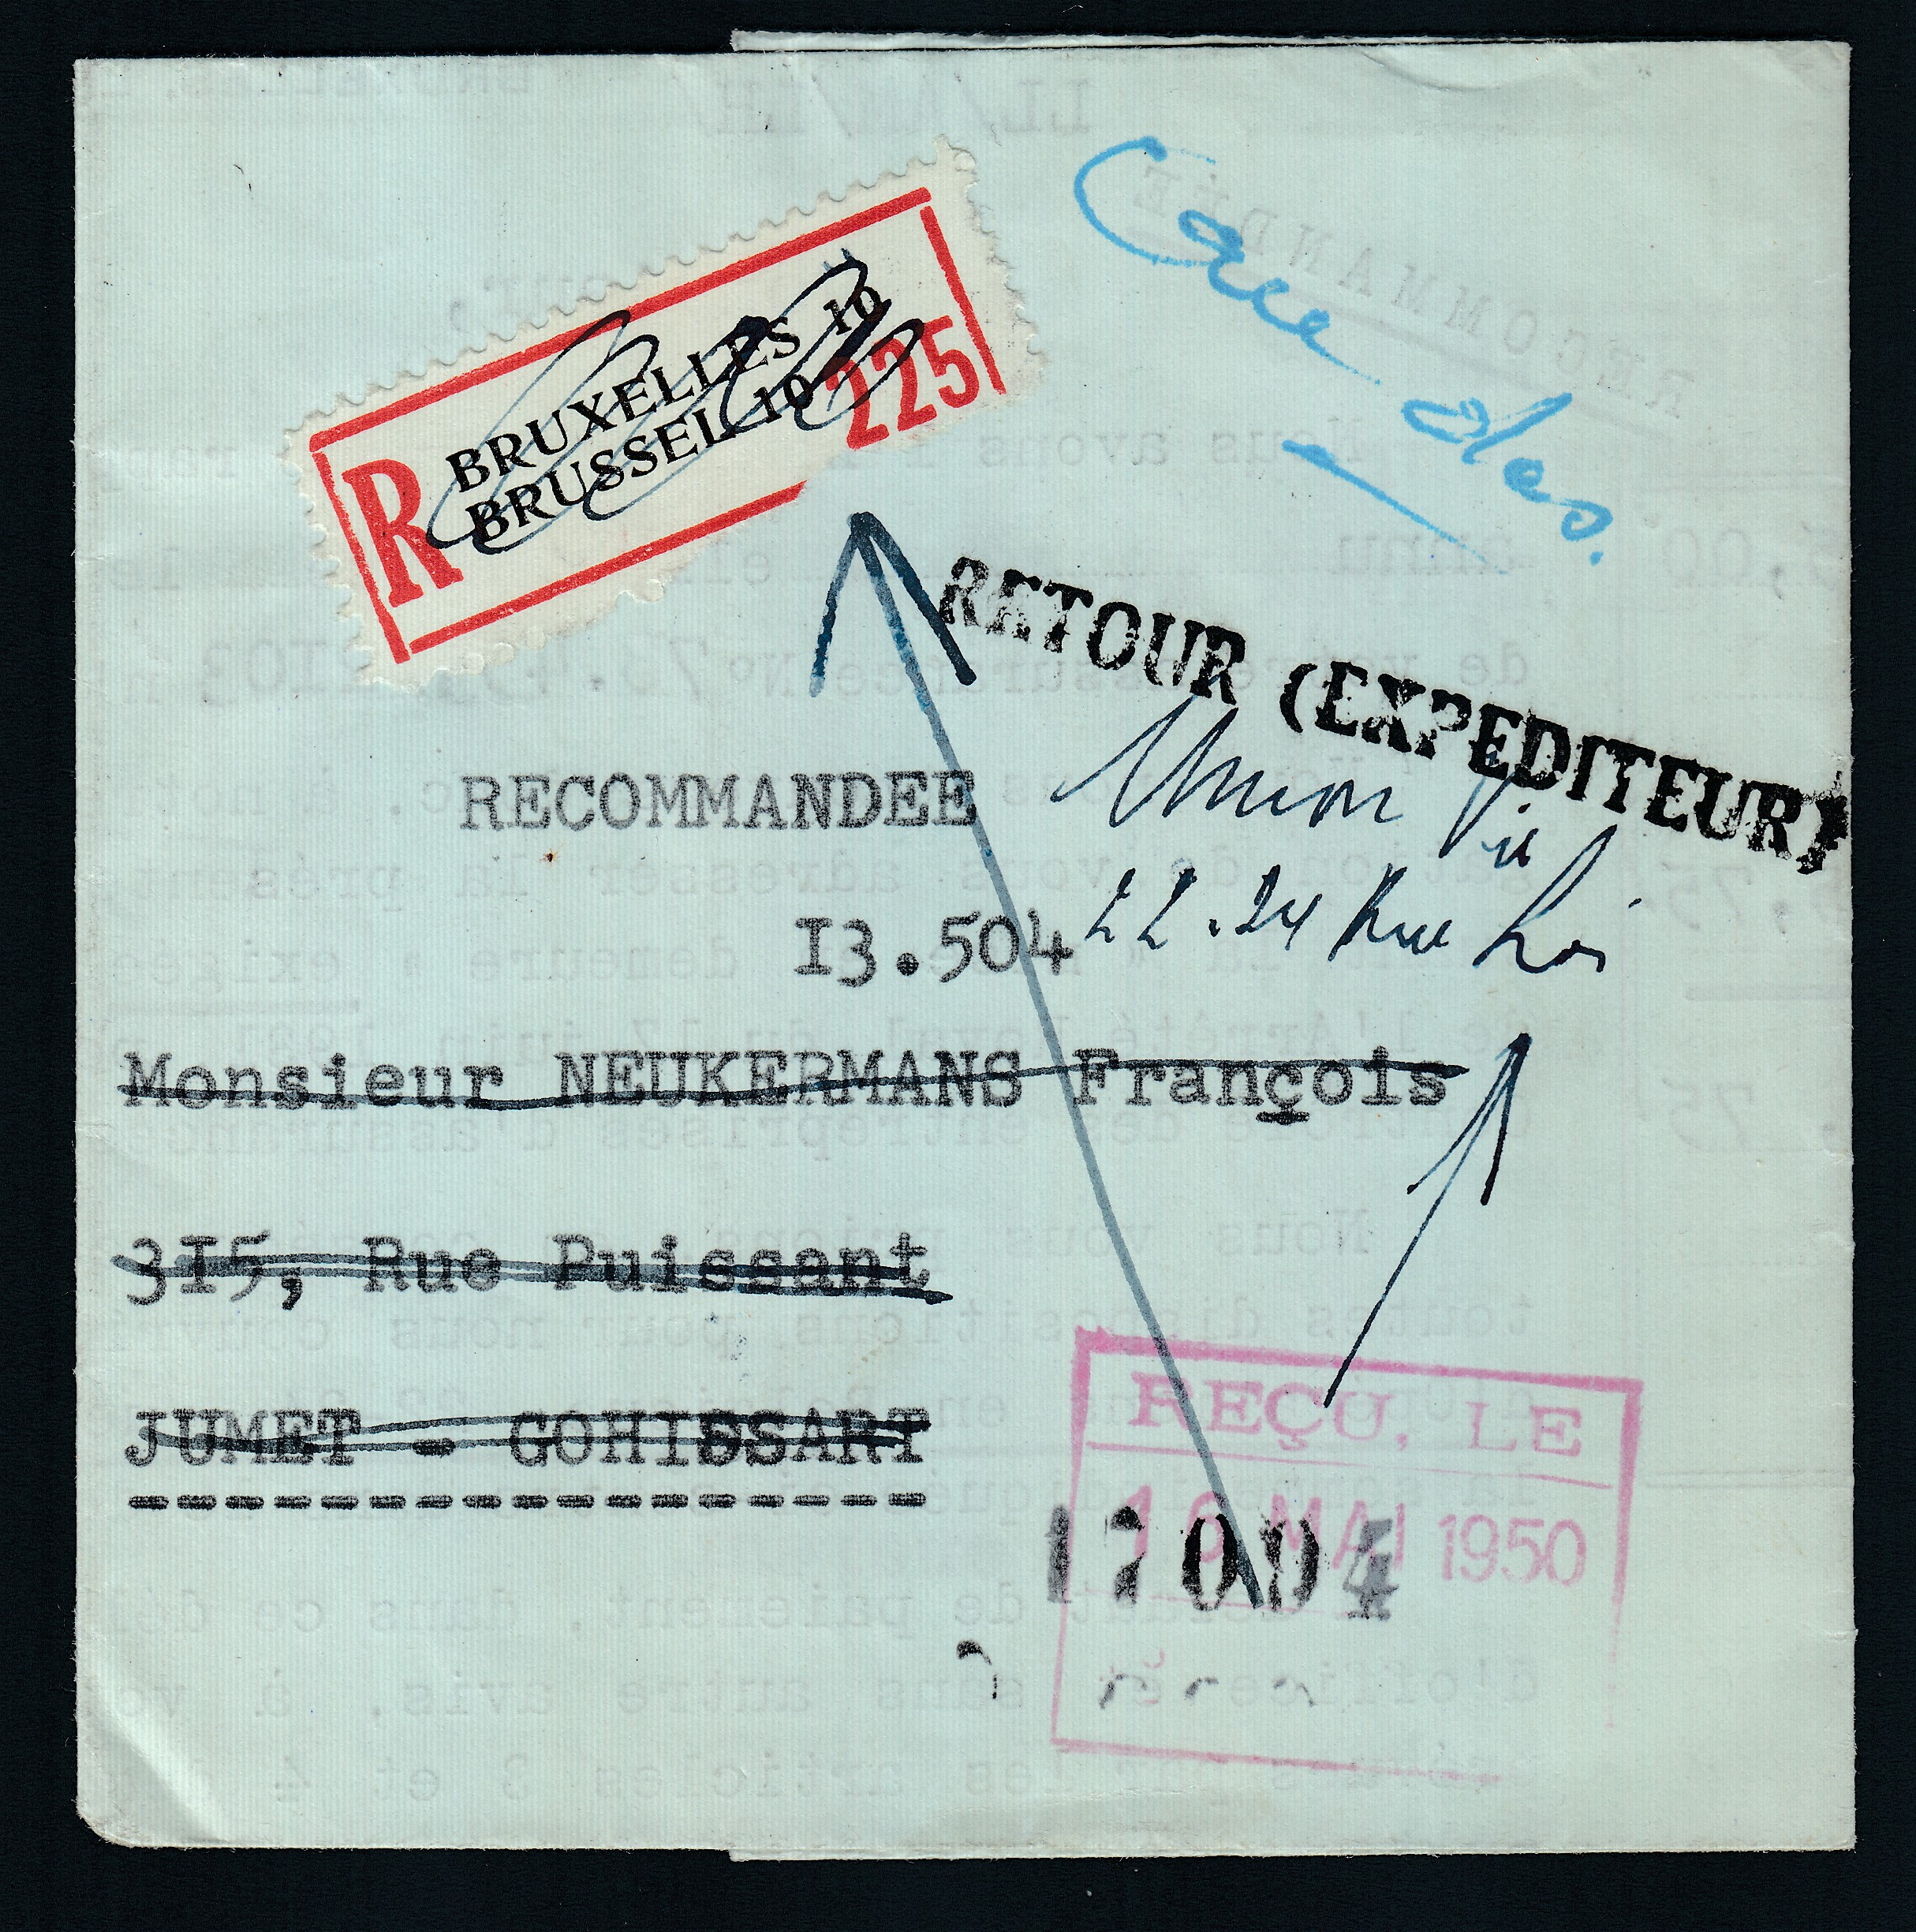 R BRUXELLES 10
BRUSSEL 10 225
RETOUR (EXPEDITEUR)
RECOMMANDEE
Union
22.24 Rue Loi
I3.504
Monsieur NEUKERMANS François
3I5, Rue Puissant
JUMET - GOHISSART
REÇU, LE
16 MAI 1950
17004